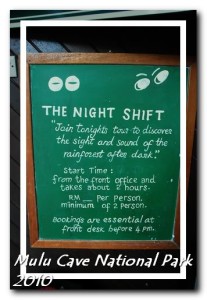 THE NIGHT SHIFT
"Join tonights tour to discover
the sight and sound of the
rainforest after dark."
Start Time :
from the front office and
takes about 2 hours.
RM __ Per Person,
minimum of 2 person.
Bookings are essential at
front desk before 4 pm.
Mulu Cave National Park
2010